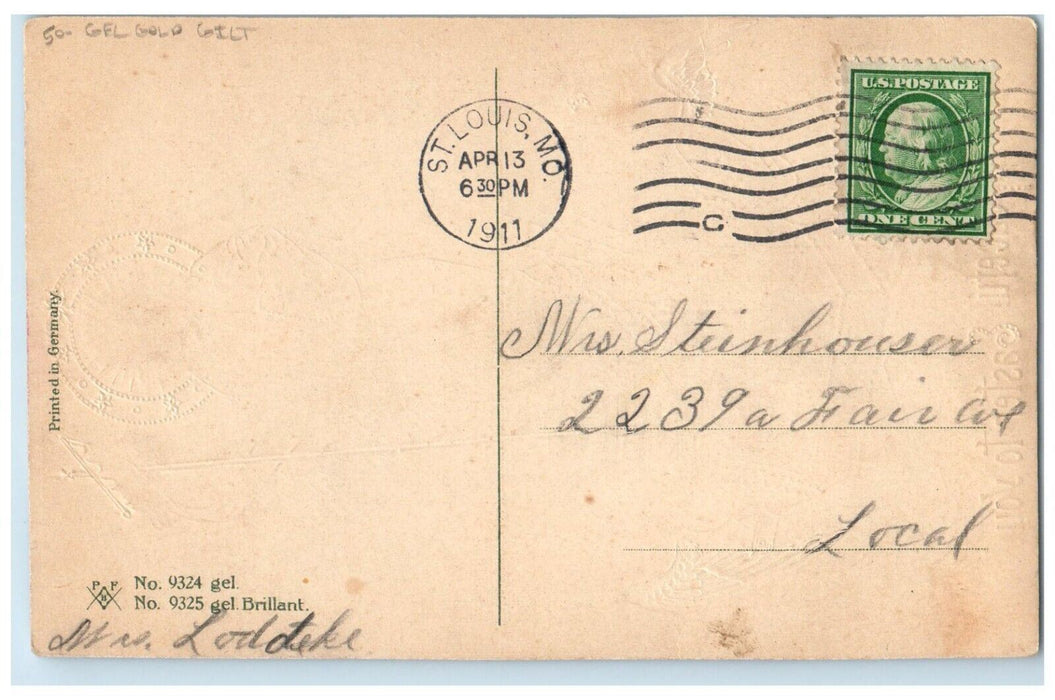 50- GEL GOLD GILT
U.S. POSTAGE
ONE CENT
ST. LOUIS, MO.
APR 13
6 30 PM
1911
C
Printed in Germany.
Mrs. Steinhouser
2239a Fair Ave
Local
P F B
No. 9324 gel.
No. 9325 gel. Brillant.
Mrs.